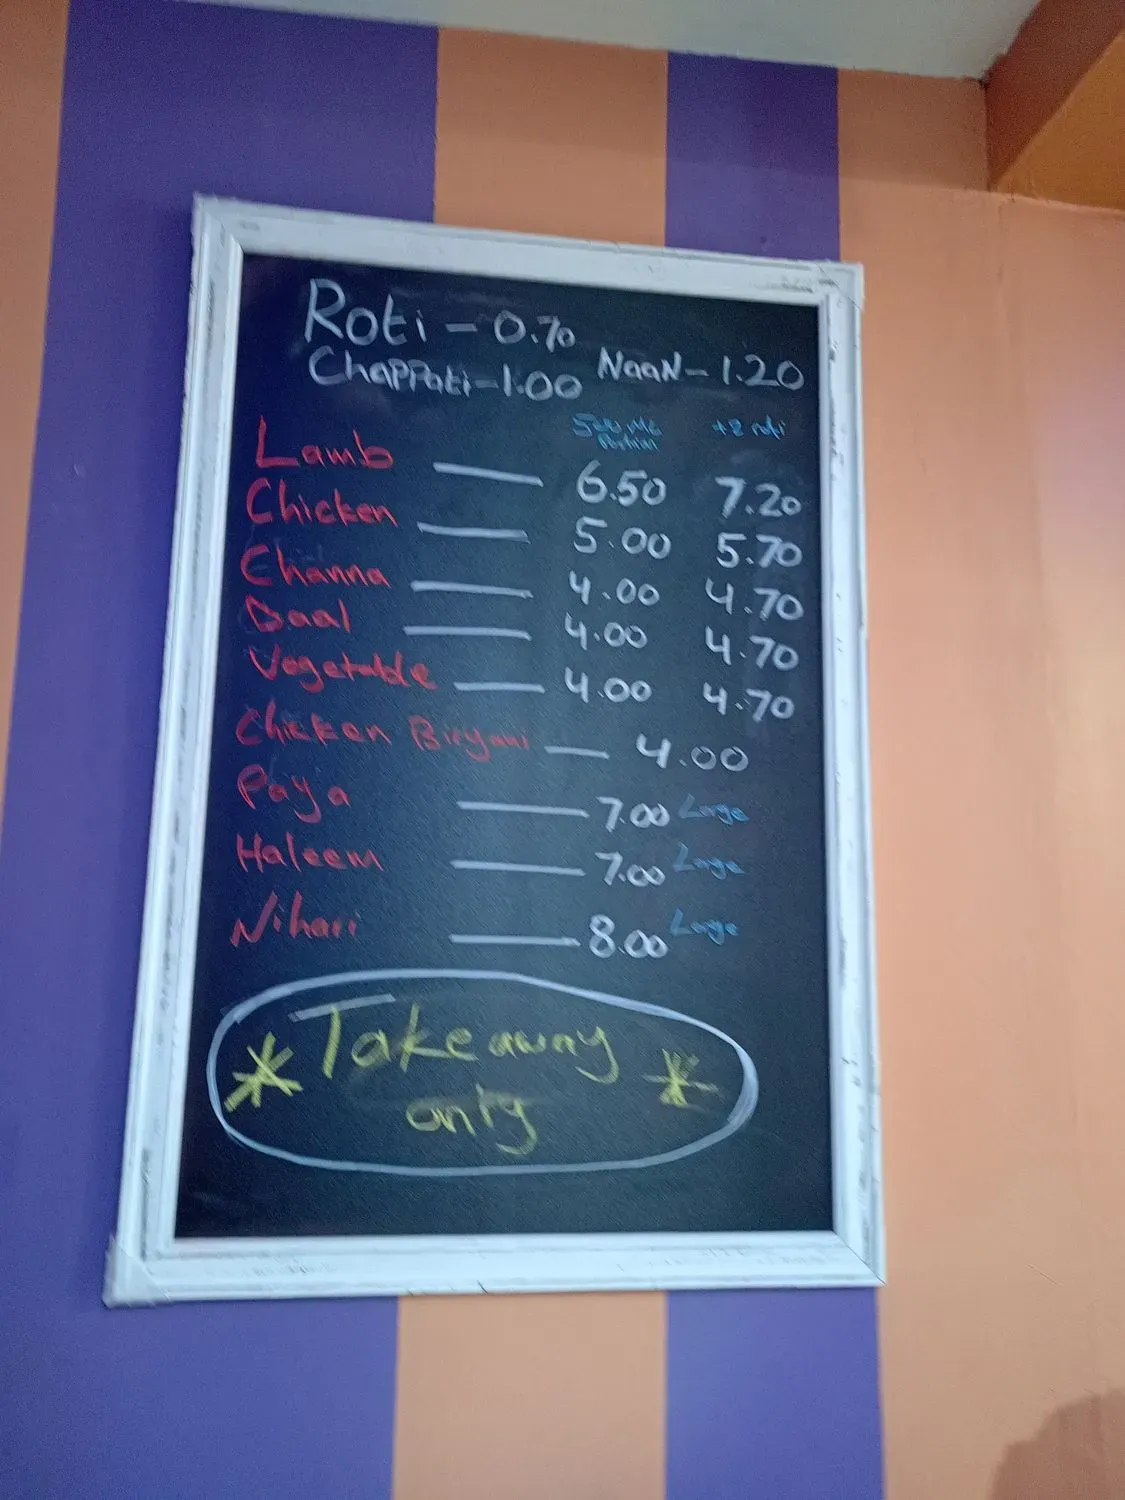 Roti - 0.70
Chappati - 1.00 Naan - 1.20
500 ML Portion +2 roti
Lamb — 6.50 7.20
Chicken — 5.00 5.70
Channa — 4.00 4.70
Daal — 4.00 4.70
Vegetable — 4.00 4.70
Chicken Biryani — 4.00
Paya — 7.00 Large
Haleem — 7.00 Large
Nihari — 8.00 Large
* Takeaway *
only